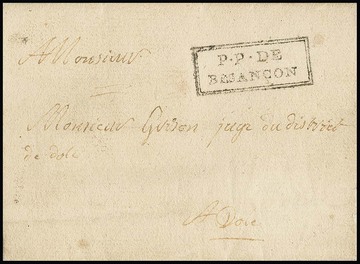 P.P. DE
BESANÇON
A Monsieur
Monsieur juge du district
de dole
A Dole